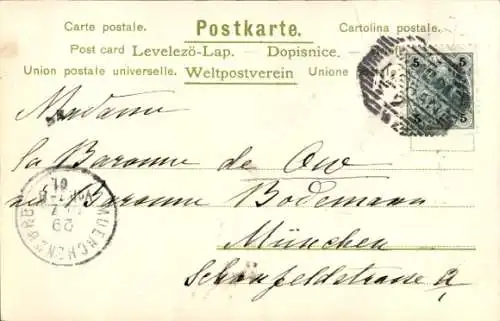 Carte postale. Postkarte. Cartolina postale.
Post card Levelezö-Lap. — Dopisnice. —
Union postale universelle. Weltpostverein Unione
5 5
5 5
Madame
la Baronne de Ow
née Baronne Bodemann
München
Schönfeldstrasse
MUENCHEN
29
01